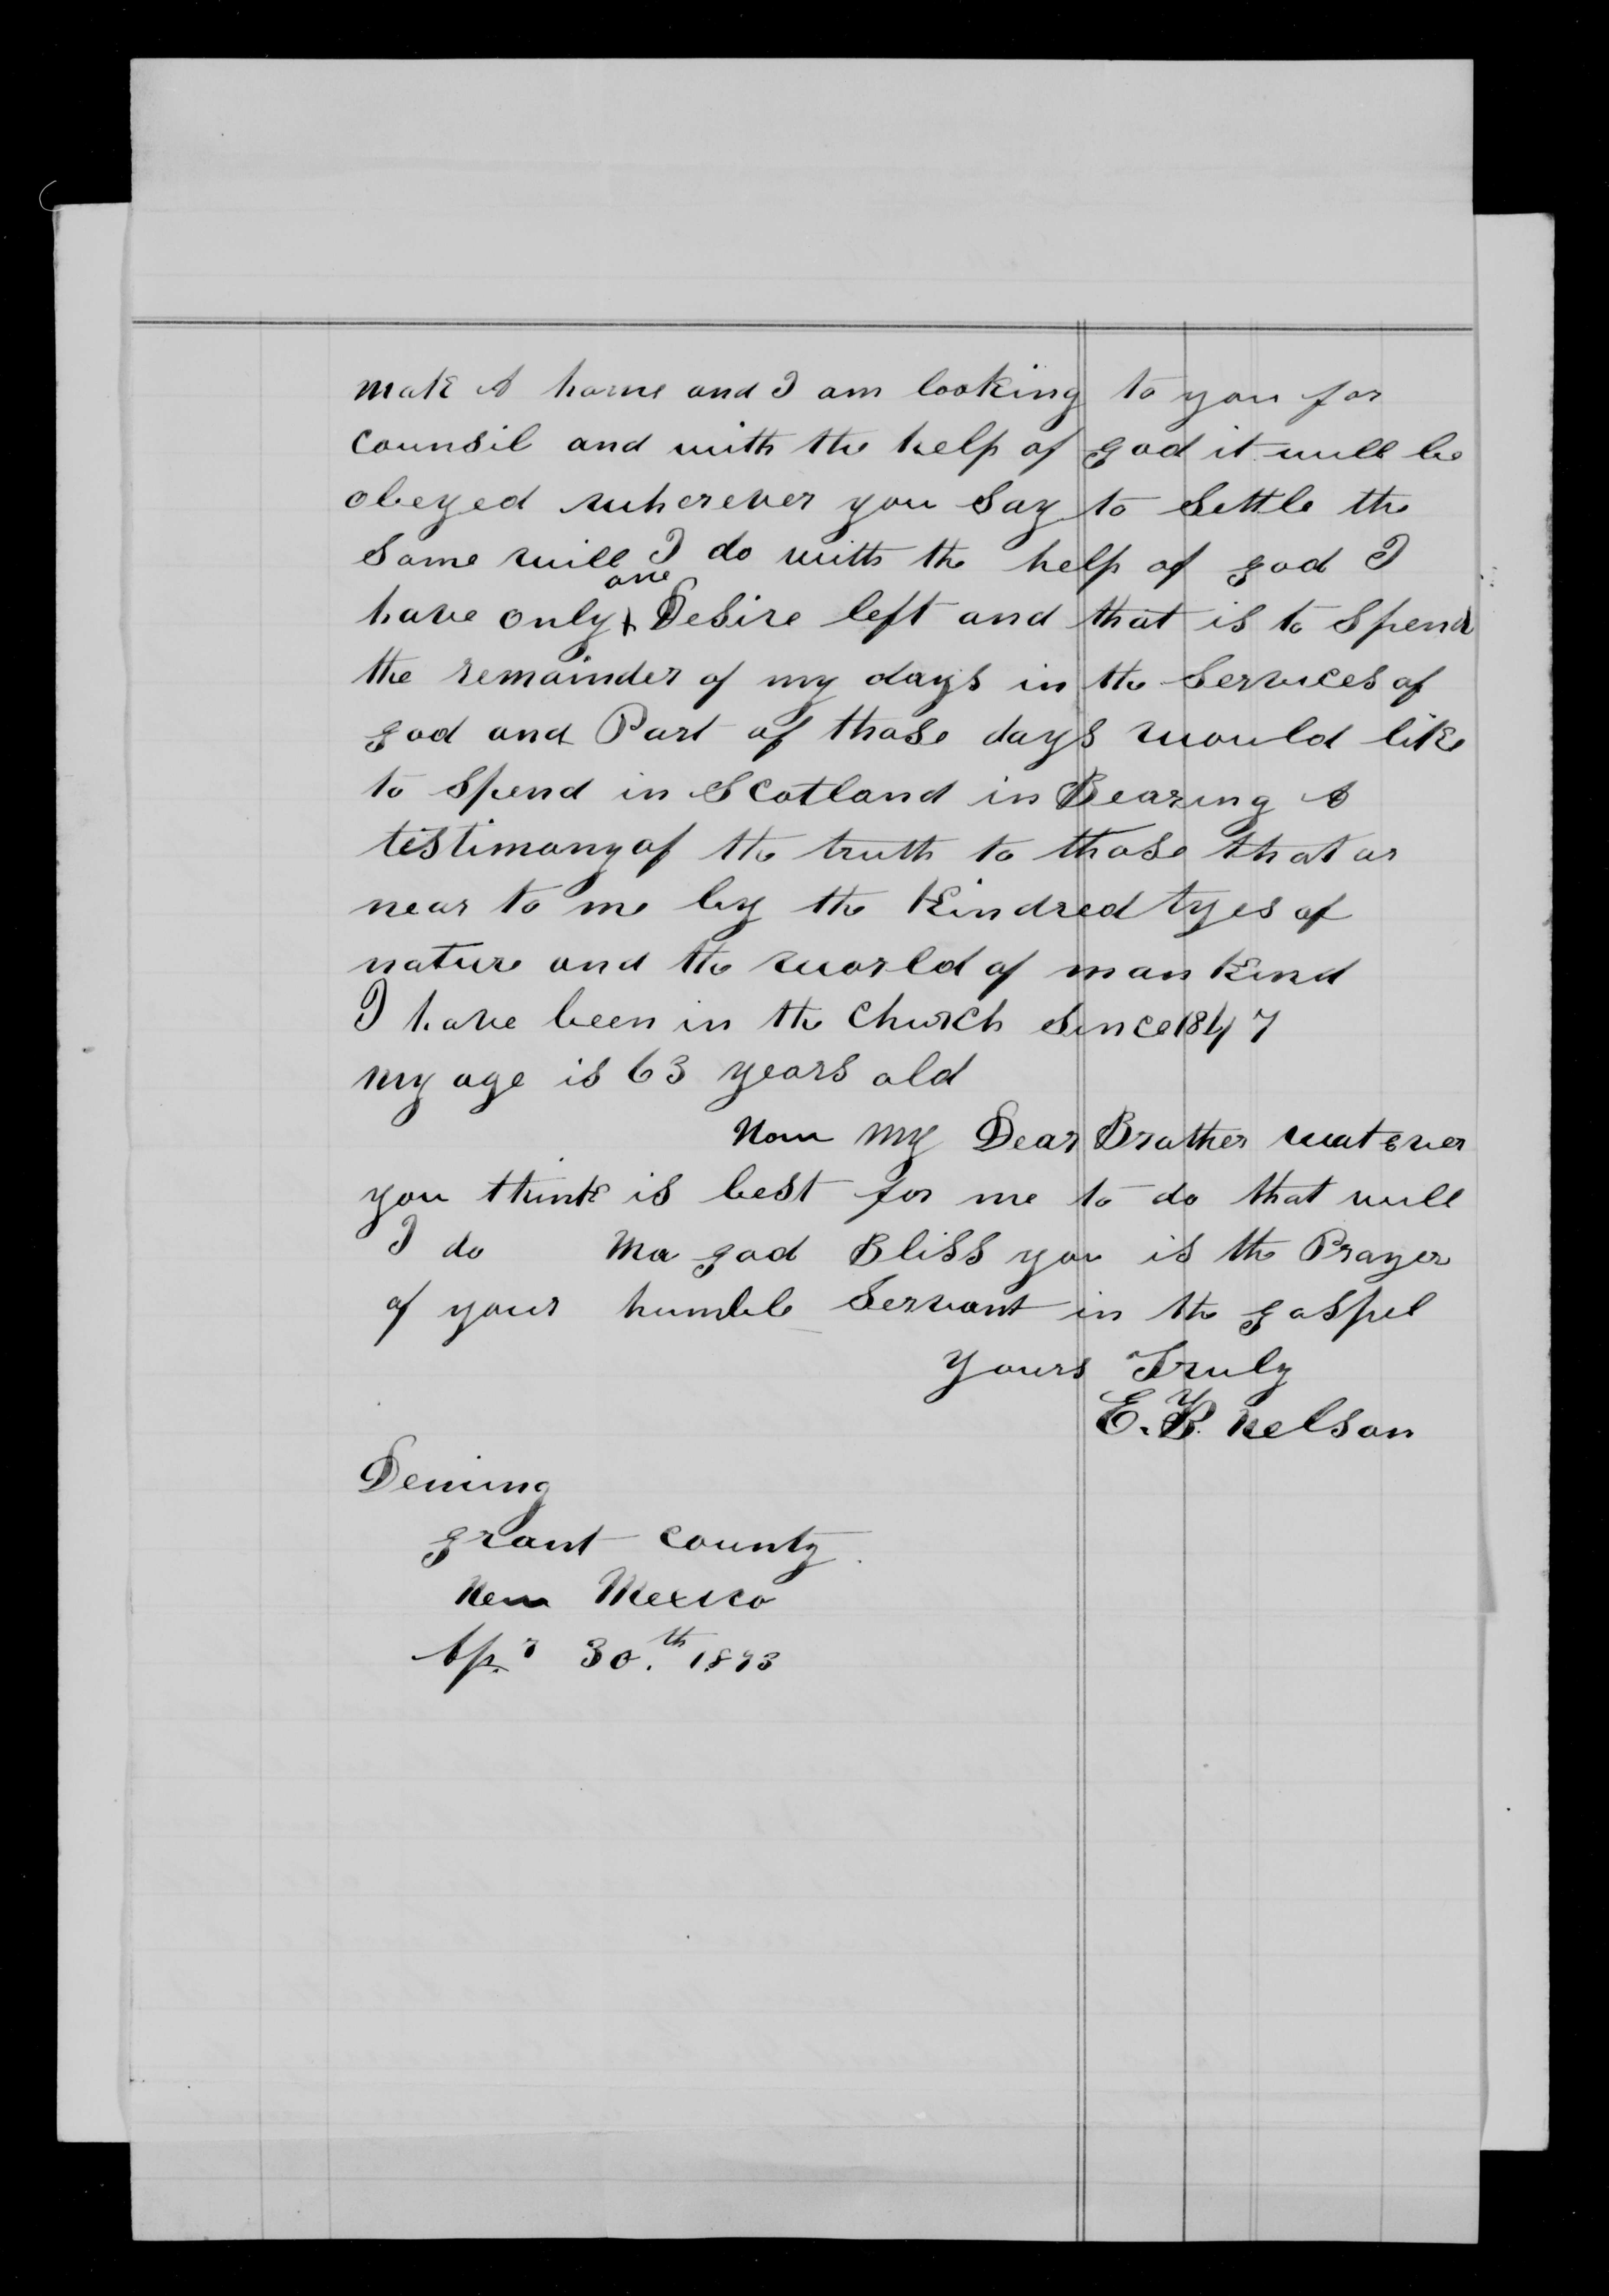 make A home and I am looking to you for
counsil and with the help of god it will be
obeyed wherever you Say to Settle the
Same will I do with the help of god I
have only one Desire left and that is to Spend
the remainder of my days in the Services of
god and Part of those days would like
to Spend in Scotland in Bearing A
testimony of the truth to those that ar
near to me by the Kindred tyes of
nature and the world of man Kind
I have been in the Church Since 1847
my age is 63 years old
Now my Dear Brother watever
you think is best for me to do that will
I do Ma god Bliss you is the Prayer
of your humble Servant in the gospel
Yours Truly
E. Y. Nelson
Deming
grant county
New Mexico
Apr 30.th 1893